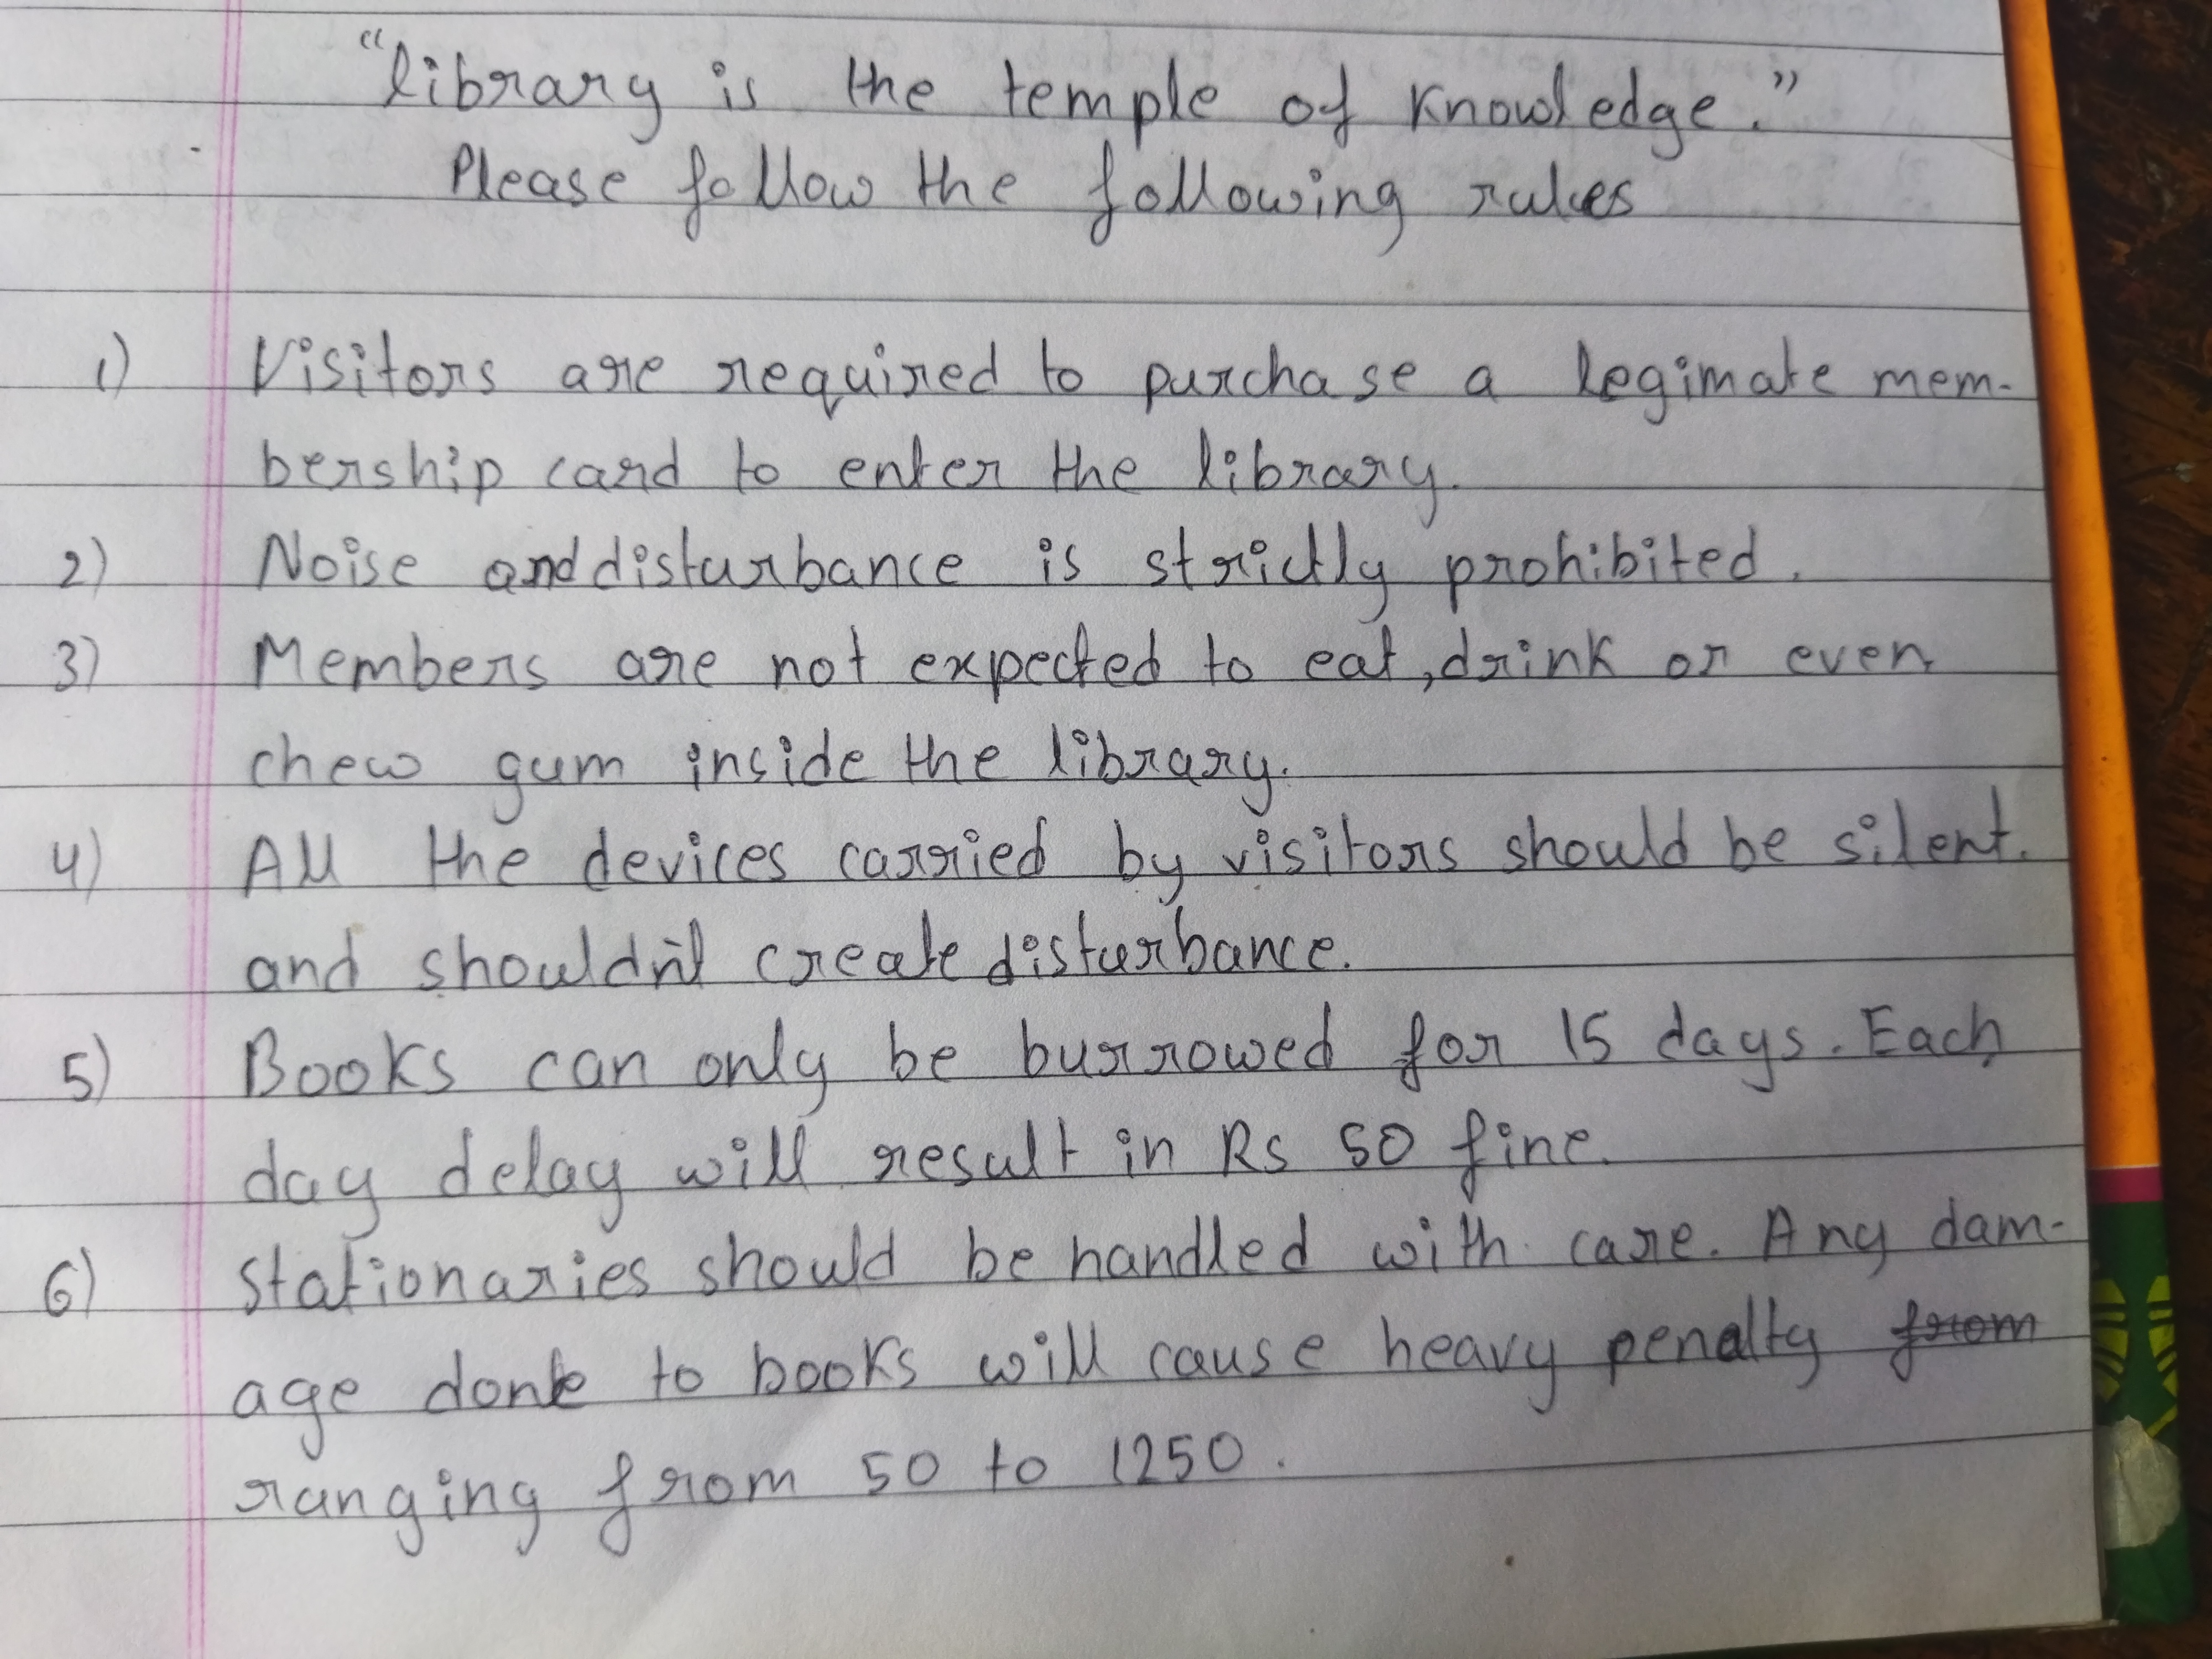 "library is the temple of knowledge."
Please follow the following rules
1) Visitors are required to purchase a legimate mem-
bership card to enter the library.
2) Noise and disturbance is strictly prohibited.
3) Members are not expected to eat, drink or even
chew gum inside the library.
4) All the devices carried by visitors should be silent.
and shouldn't create disturbance.
5) Books can only be burrowed for 15 days. Each
day delay will result in Rs 50 fine.
6) Stationaries should be handled with care. Any dam-
age done to books will cause heavy penalty from
ranging from 50 to 1250.